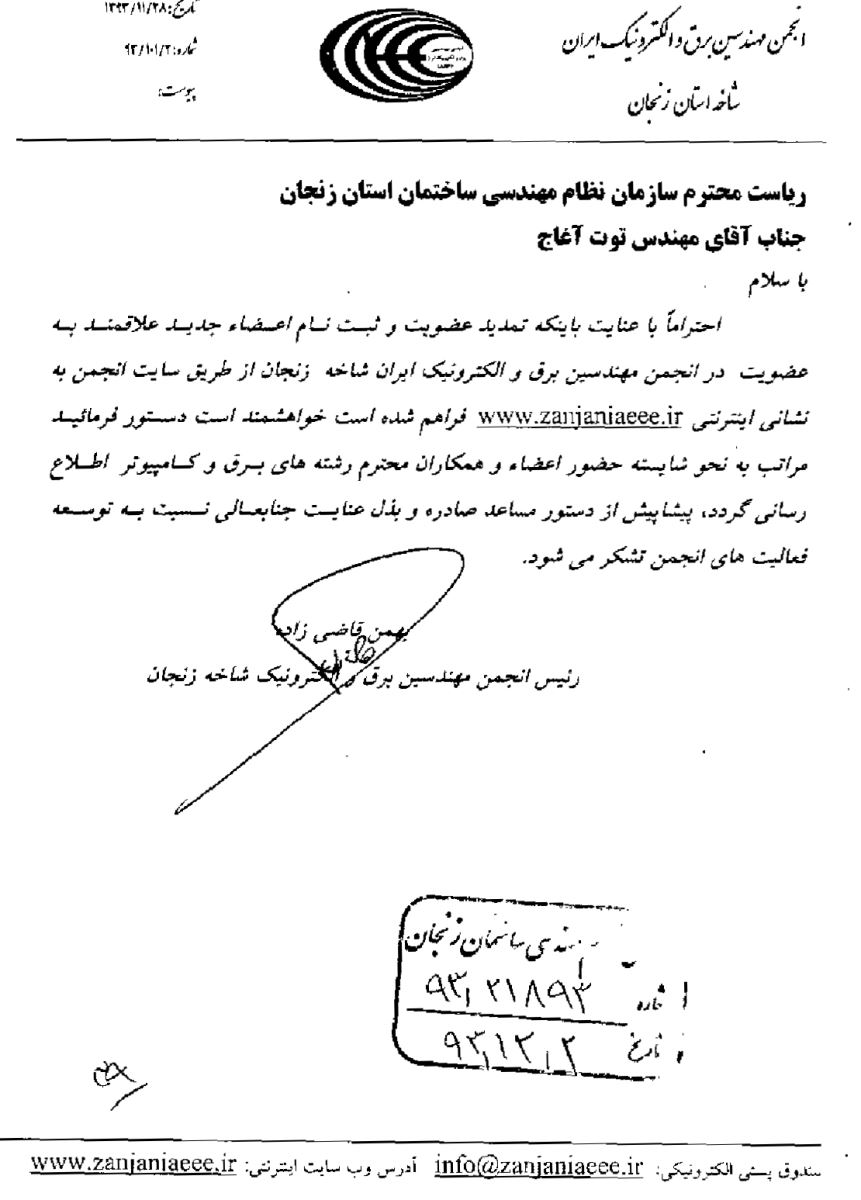 انجمن مهندسین برق و الکترونیک ایران
شاخه استان زنجان
تاریخ: ۱۳۹۳/۱۱/۲۸
شماره: ۹۳/۱۰۱/۲
پیوست:
ریاست محترم سازمان نظام مهندسی ساختمان استان زنجان
جناب آقای مهندس توت آغاج
با سلام
احتراماً با عنایت باینکه تمدید عضویت و ثبت نام اعضاء جدید علاقمند به
عضویت در انجمن مهندسین برق و الکترونیک ایران شاخه زنجان از طریق سایت انجمن به
نشانی اینترنتی www.zanjaniaeee.ir فراهم شده است خواهشمند است دستور فرمائید
مراتب به نحو شایسته حضور اعضاء و همکاران محترم رشته های برق و کامپیوتر اطلاع
رسانی گردد، پیشاپیش از دستور مساعد صادره و بذل عنایت جنابعالی نسبت به توسعه
فعالیت های انجمن تشکر می شود.
بهمن قاضی زاده
رئیس انجمن مهندسین برق و الکترونیک شاخه زنجان
مهندسی ساختمان زنجان
شماره ۹۳٫۲۱۸۹۳
تاریخ ۹۳٫۱۲٫۲
صندوق پستی الکترونیکی: info@zanjaniaeee.ir آدرس وب سایت اینترنتی: www.zanjaniaeee.ir